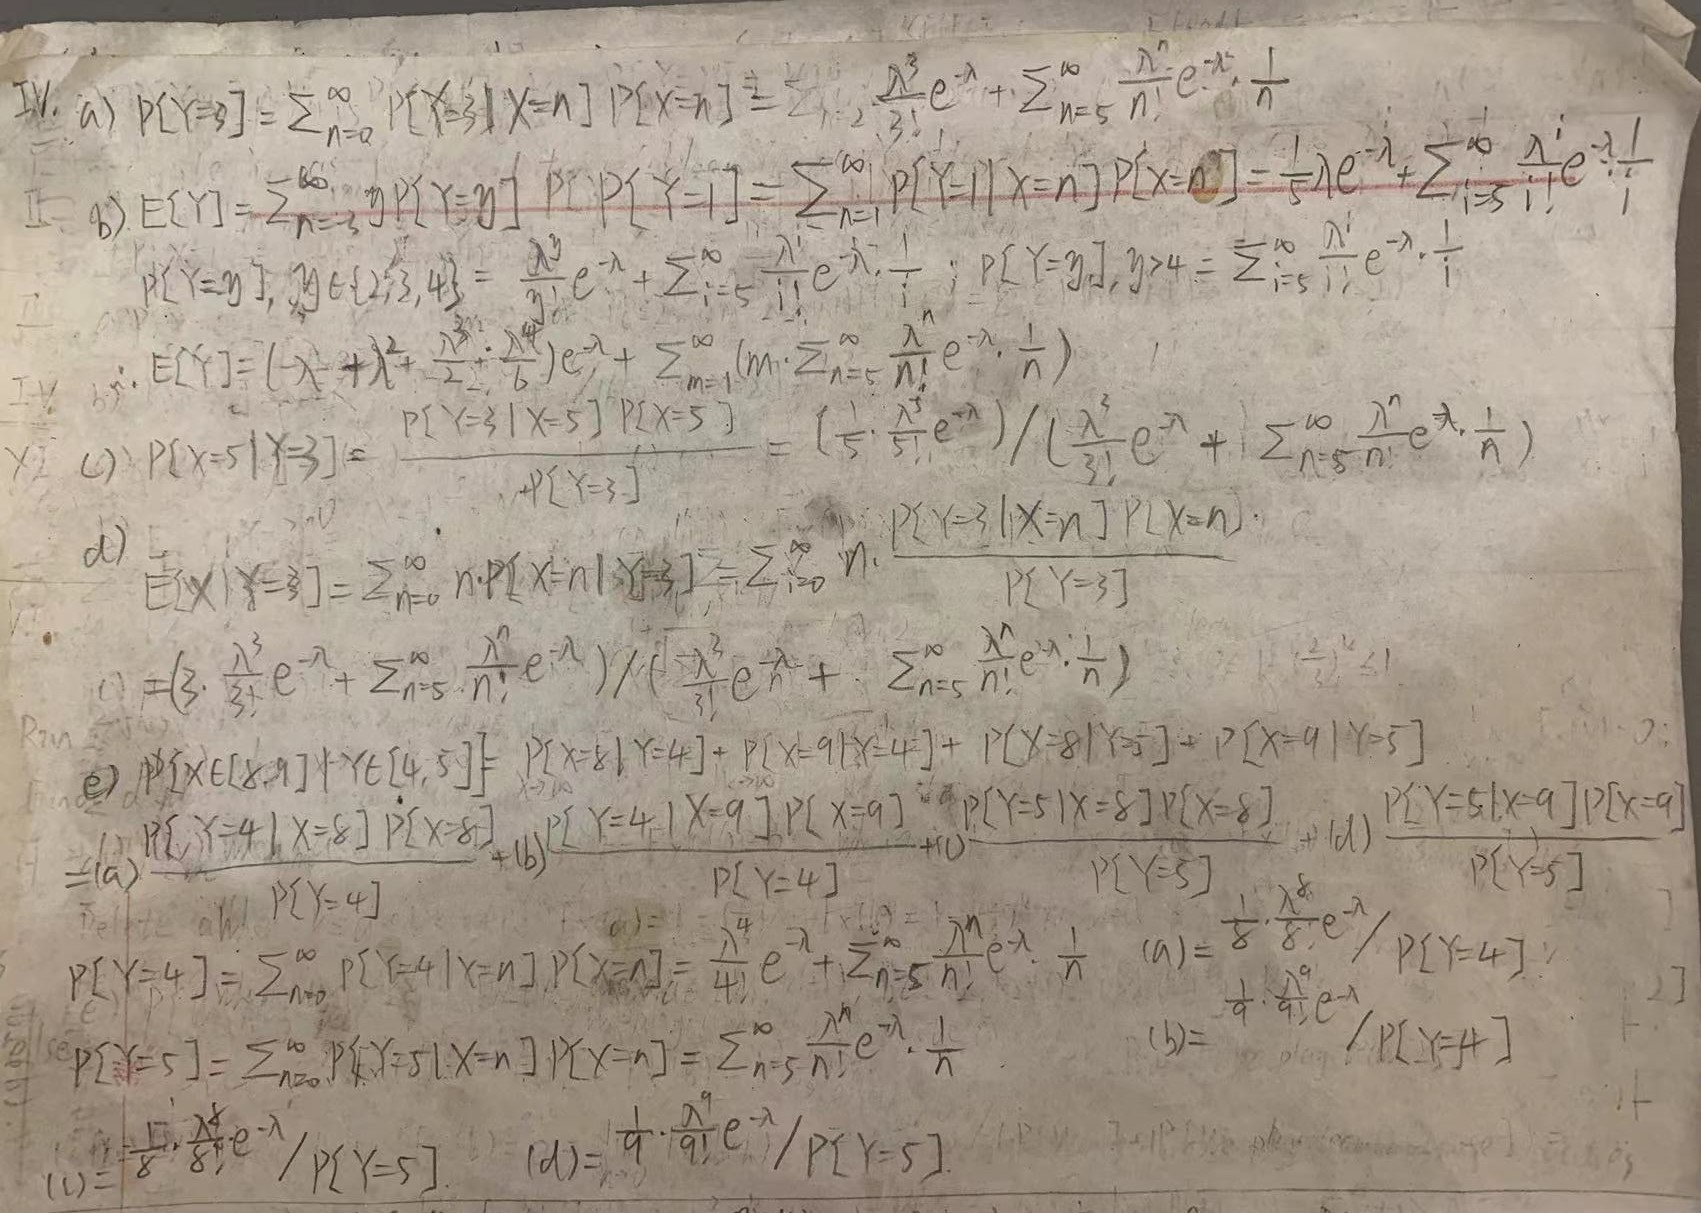 IV. a) P[Y=3] = ∑_{n=0}^∞ P[Y=3|X=n] P[X=n] = λ³/3! e^{-λ} + ∑_{n=5}^∞ λⁿ/n! e^{-λ} · 1/n
b) E[Y] = ∑_{n=3}^∞ y P[Y=y] P[Y=1] = ∑_{n=1}^∞ P[Y=1|X=n] P[X=n] = 1/5 λe^{-λ} + ∑_{i=5}^∞ λ^i/i! e^{-λ} · 1/i
P[Y=y], y∈{2,3,4} = λ^y/y! e^{-λ} + ∑_{i=5}^∞ λ^i/i! e^{-λ} · 1/i ; P[Y=y], y>4 = ∑_{i=5}^∞ λ^i/i! e^{-λ} · 1/i
∴ E[Y] = (λ + λ² + λ³/2 + λ⁴/6)e^{-λ} + ∑_{m=1}^∞ (m · ∑_{n=5}^∞ λⁿ/n! e^{-λ} · 1/n)
c) P[X=5|Y=3] = P[Y=3|X=5] P[X=5] / P[Y=3] = (1/5 · λ⁵/5! e^{-λ}) / (λ³/3! e^{-λ} + ∑_{n=5}^∞ λⁿ/n! e^{-λ} · 1/n)
d) E[X|Y=3] = ∑_{n=0}^∞ n·P[X=n|Y=3] = ∑_{i=0}^∞ n · P[Y=3|X=n] P[X=n] / P[Y=3]
= (3 · λ³/3! e^{-λ} + ∑_{n=5}^∞ λⁿ/n! e^{-λ}) / (λ³/3! e^{-λ} + ∑_{n=5}^∞ λⁿ/n! e^{-λ} · 1/n)
e) P[X∈[8,9] | Y∈[4,5]] = P[X=8|Y=4] + P[X=9|Y=4] + P[X=8|Y=5] + P[X=9|Y=5]
= (a) P[Y=4|X=8] P[X=8] / P[Y=4] + (b) P[Y=4|X=9] P[X=9] / P[Y=4] + (c) P[Y=5|X=8] P[X=8] / P[Y=5] + (d) P[Y=5|X=9] P[X=9] / P[Y=5]
P[Y=4] = ∑_{n=0}^∞ P[Y=4|X=n] P[X=n] = λ⁴/4! e^{-λ} + ∑_{n=5}^∞ λⁿ/n! e^{-λ} · 1/n (a) = 1/8 · λ⁸/8! e^{-λ} / P[Y=4]
P[Y=5] = ∑_{n=0}^∞ P[Y=5|X=n] P[X=n] = ∑_{n=5}^∞ λⁿ/n! e^{-λ} · 1/n (b) = 1/9 · λ⁹/9! e^{-λ} / P[Y=4]
(c) = 1/8 · λ⁸/8! e^{-λ} / P[Y=5] (d) = 1/9 · λ⁹/9! e^{-λ} / P[Y=5]